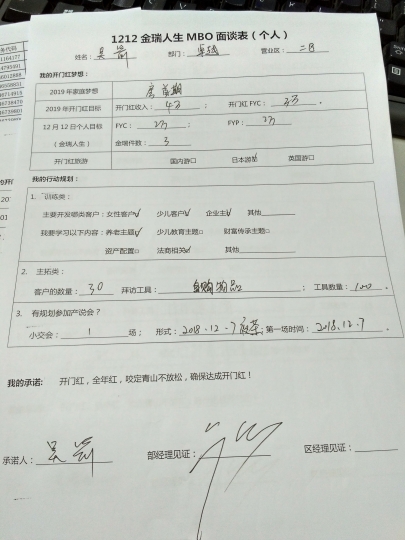 1212 金瑞人生 MBO 面谈表（个人）
姓名： 部门： 营业区：二B
我的开门红梦想：
2019 年家庭梦想 房首期
2019 年开门红目标 开门红收入：4万 ； 开门红 FYC：2万 。
12 月 12 日个人目标 FYC：2万 ； FYP：2万
（金瑞人生） 金瑞件数：3
开门红旅游 国内游□ 日本游☑ 英国游□
我的行动规划：
1. 训练类：
主要开发哪类客户：女性客户☑ 少儿客户☑ 企业主☑ 其他
我要学习以下内容：养老主题☑ 少儿教育主题□ 财富传承主题□
资产配置□ 法商相关☑ 其他
2. 主拓类：
客户的数量：30 拜访工具： ； 工具数量：100 。
3. 有规划参加产说会？
小交会：1 场； 形式：2018.12.7 ；第一场时间：2018.12.7 。
我的承诺： 开门红，全年红，咬定青山不放松，确保达成开门红！
承诺人： 部经理见证： 区经理见证：
务代码